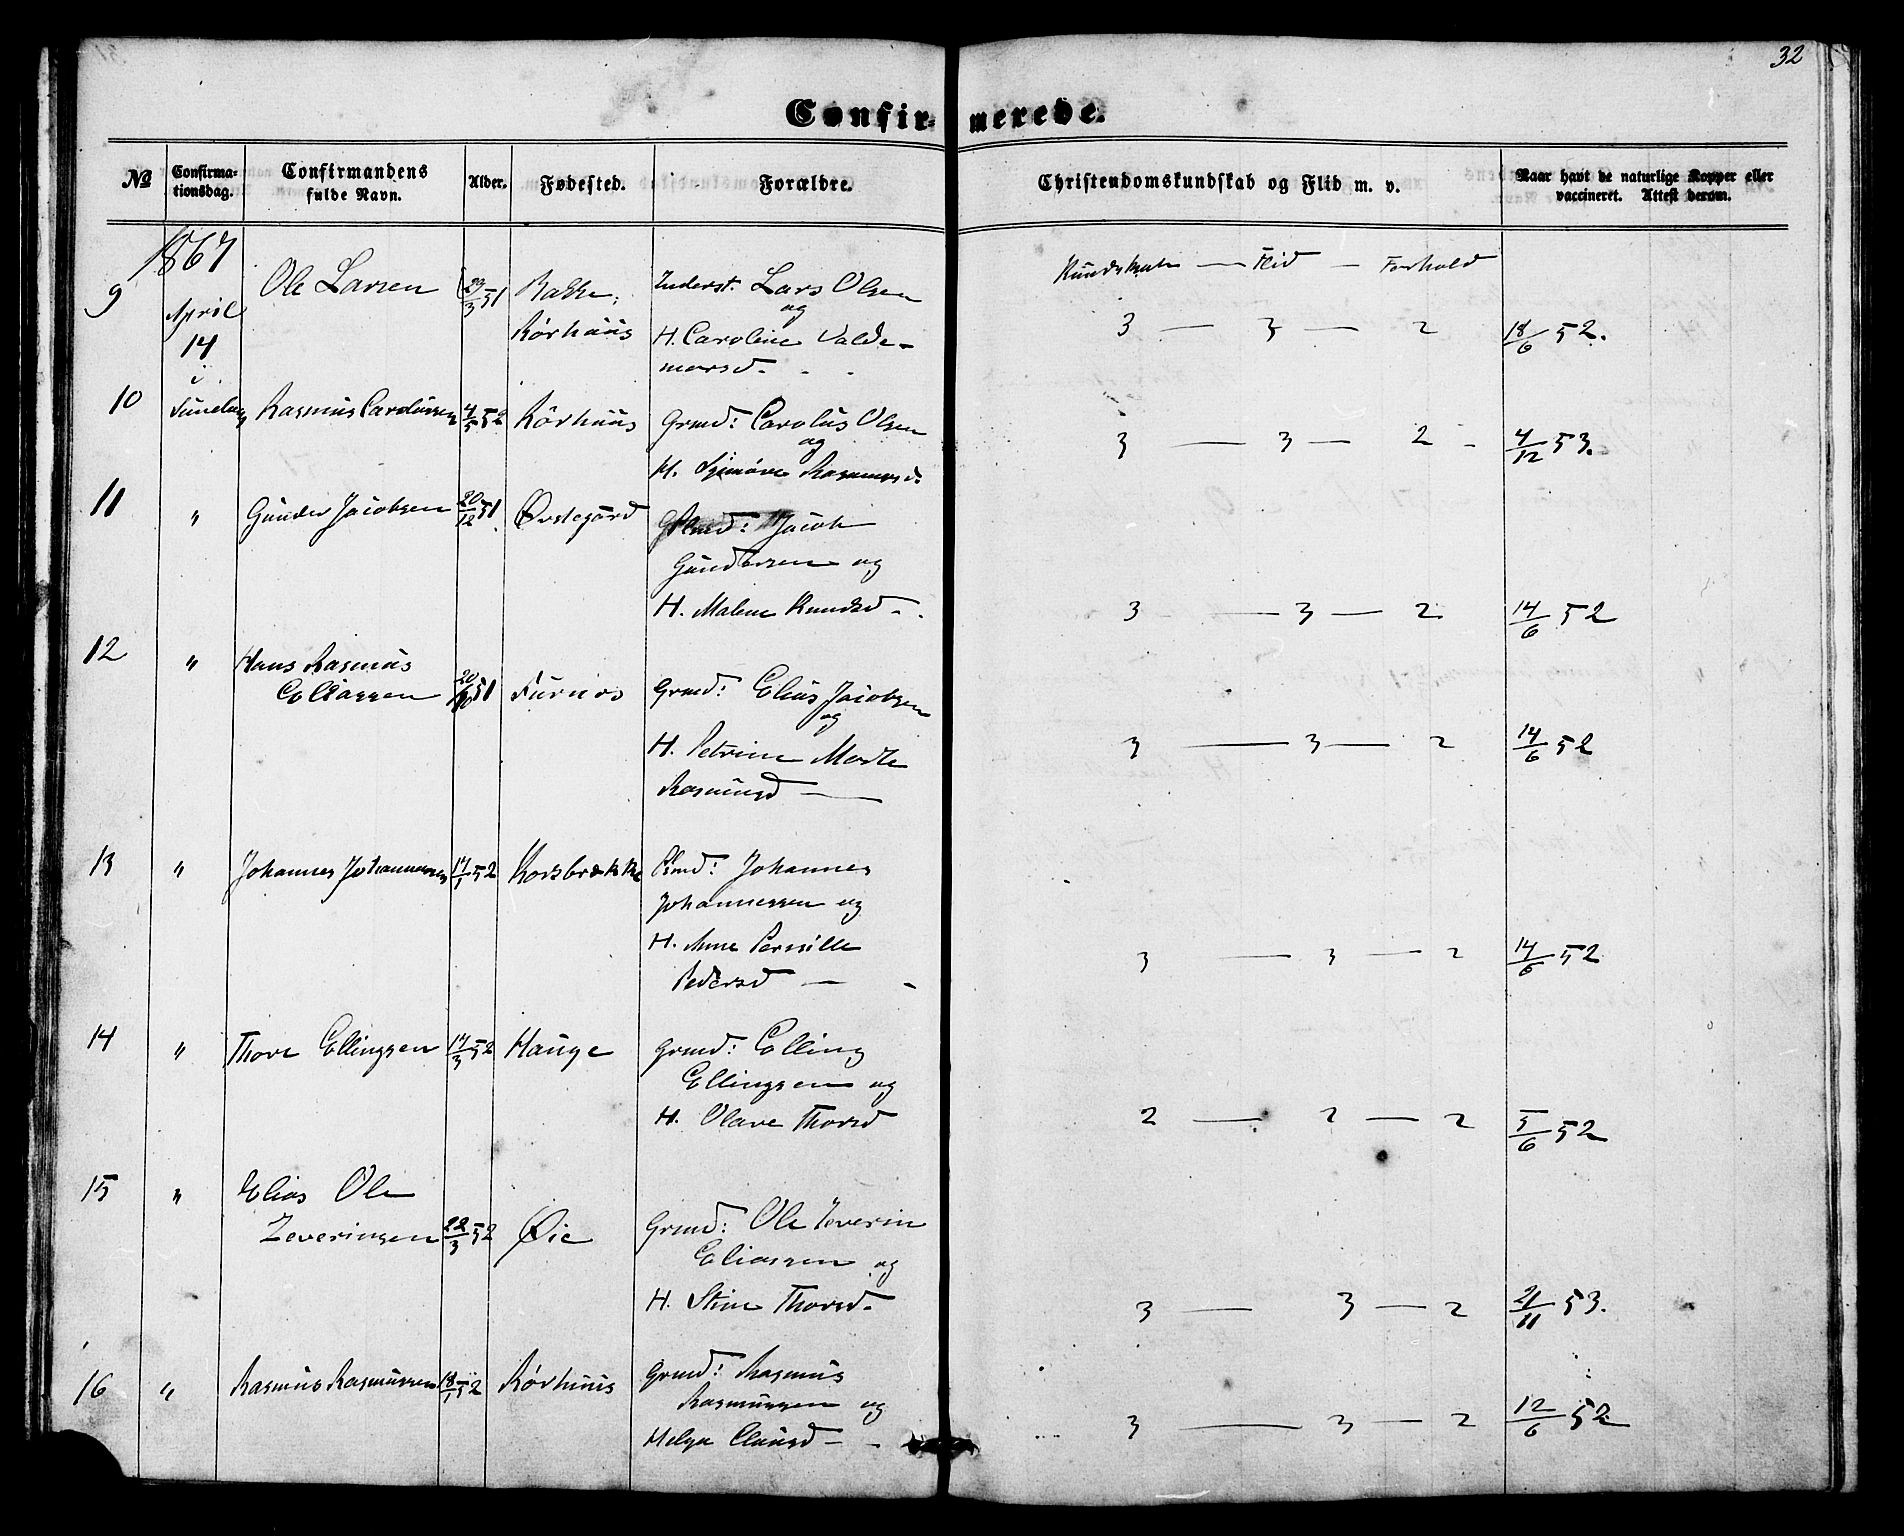 32
Confirmerede.
No
Confirmationsdag.
Confirmandens fulde Navn.
Alder.
Fødested.
Forældre.
Christendomskundskab og Flid m. v.
Naar havt de naturlige Kopper eller vaccineret. Attest derom.
1867
Kundskab — Flid — Forhold
9 April 14 i Sunelven Ole Larsen 29/3 51 Bakke, Rörhuus
Inderst. Lars Olsen
og
H. Caroline Valde-
marsd.
3 — 3 — 2 18/6 52.
10 Rasmus Carolussen 4/5 52 Rörhuus
Grmd: Carolus Olsen
og
H. Rasmusd.
3 — 3 — 2 4/12 53.
11 " Gunder Jacobsen 20/12 51 Ørstegård
Jacob
Gundersen og
H. Malene Knudsd.
3 — 3 — 2 14/6 52
12 " Hans Rasmus
Eliassen 51 Furnes
Grmd: Elias Jacobsen
og
H. Petrine Marte
Rasmusd —
3 — 3 — 2 14/6 52
13 " Johannes Johannessen 17/1 52 Korsbrække
Pmd: Johannes
Johannessen og
H. Anne Pernille
Pedersd —
3 — 3 — 2 14/6 52
14 " Thore Ellingsen 17/3 52 Hauge
Grmd: Elling
Ellingsen og
H. Olave Thorsd
2 — 2 — 2 5/6 52
15 " Elias Ole
Zeverinsen 22/3 52 Øie
Grmd: Ole Zeverin
Eliassen og
H. Stine Thorsd.
3 — 3 — 2 21/11 53.
16 " Rasmus Rasmussen 18/1 52 Rörhuus
Grmd: Rasmus
Rasmussen og
Helga Clausd —
3 — 3 — 2 12/6 52